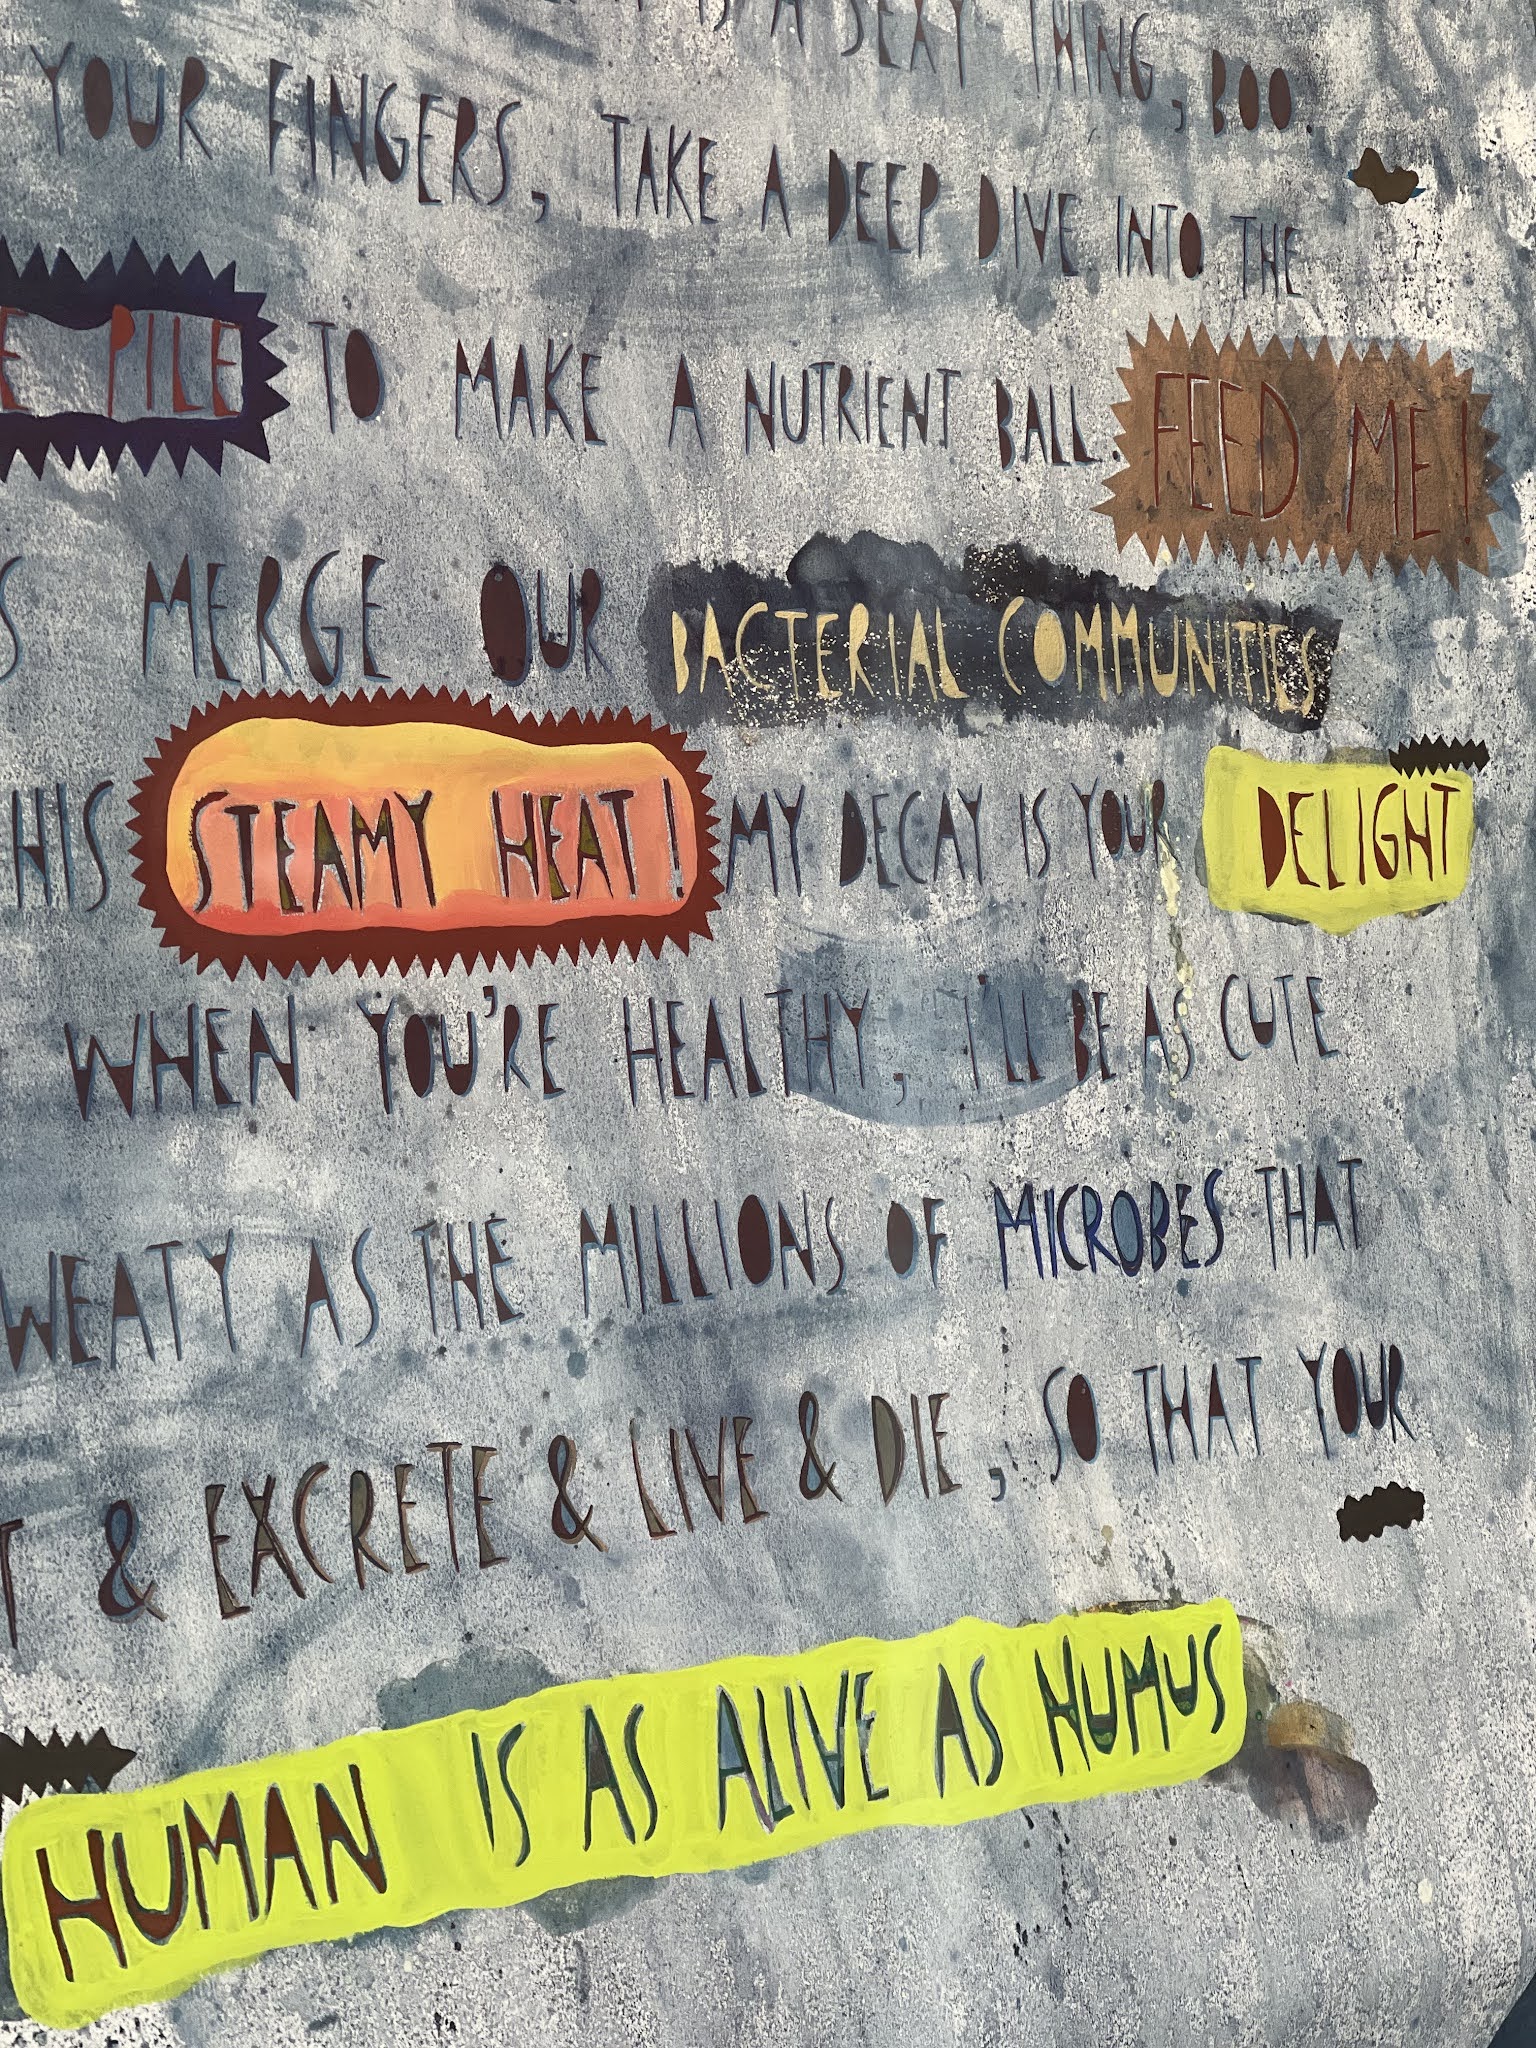 IS A SEXY THING, BOO.
YOUR FINGERS, TAKE A DEEP DIVE INTO THE
E PILE TO MAKE A NUTRIENT BALL. FEED ME!
S MERGE OUR BACTERIAL COMMUNITIES
HIS STEAMY HEAT! MY DECAY IS YOUR DELIGHT
WHEN YOU'RE HEALTHY, I'LL BE AS CUTE
WEATY AS THE MILLIONS OF MICROBES THAT
T & EXCRETE & LIVE & DIE, SO THAT YOUR
HUMAN IS AS ALIVE AS HUMUS